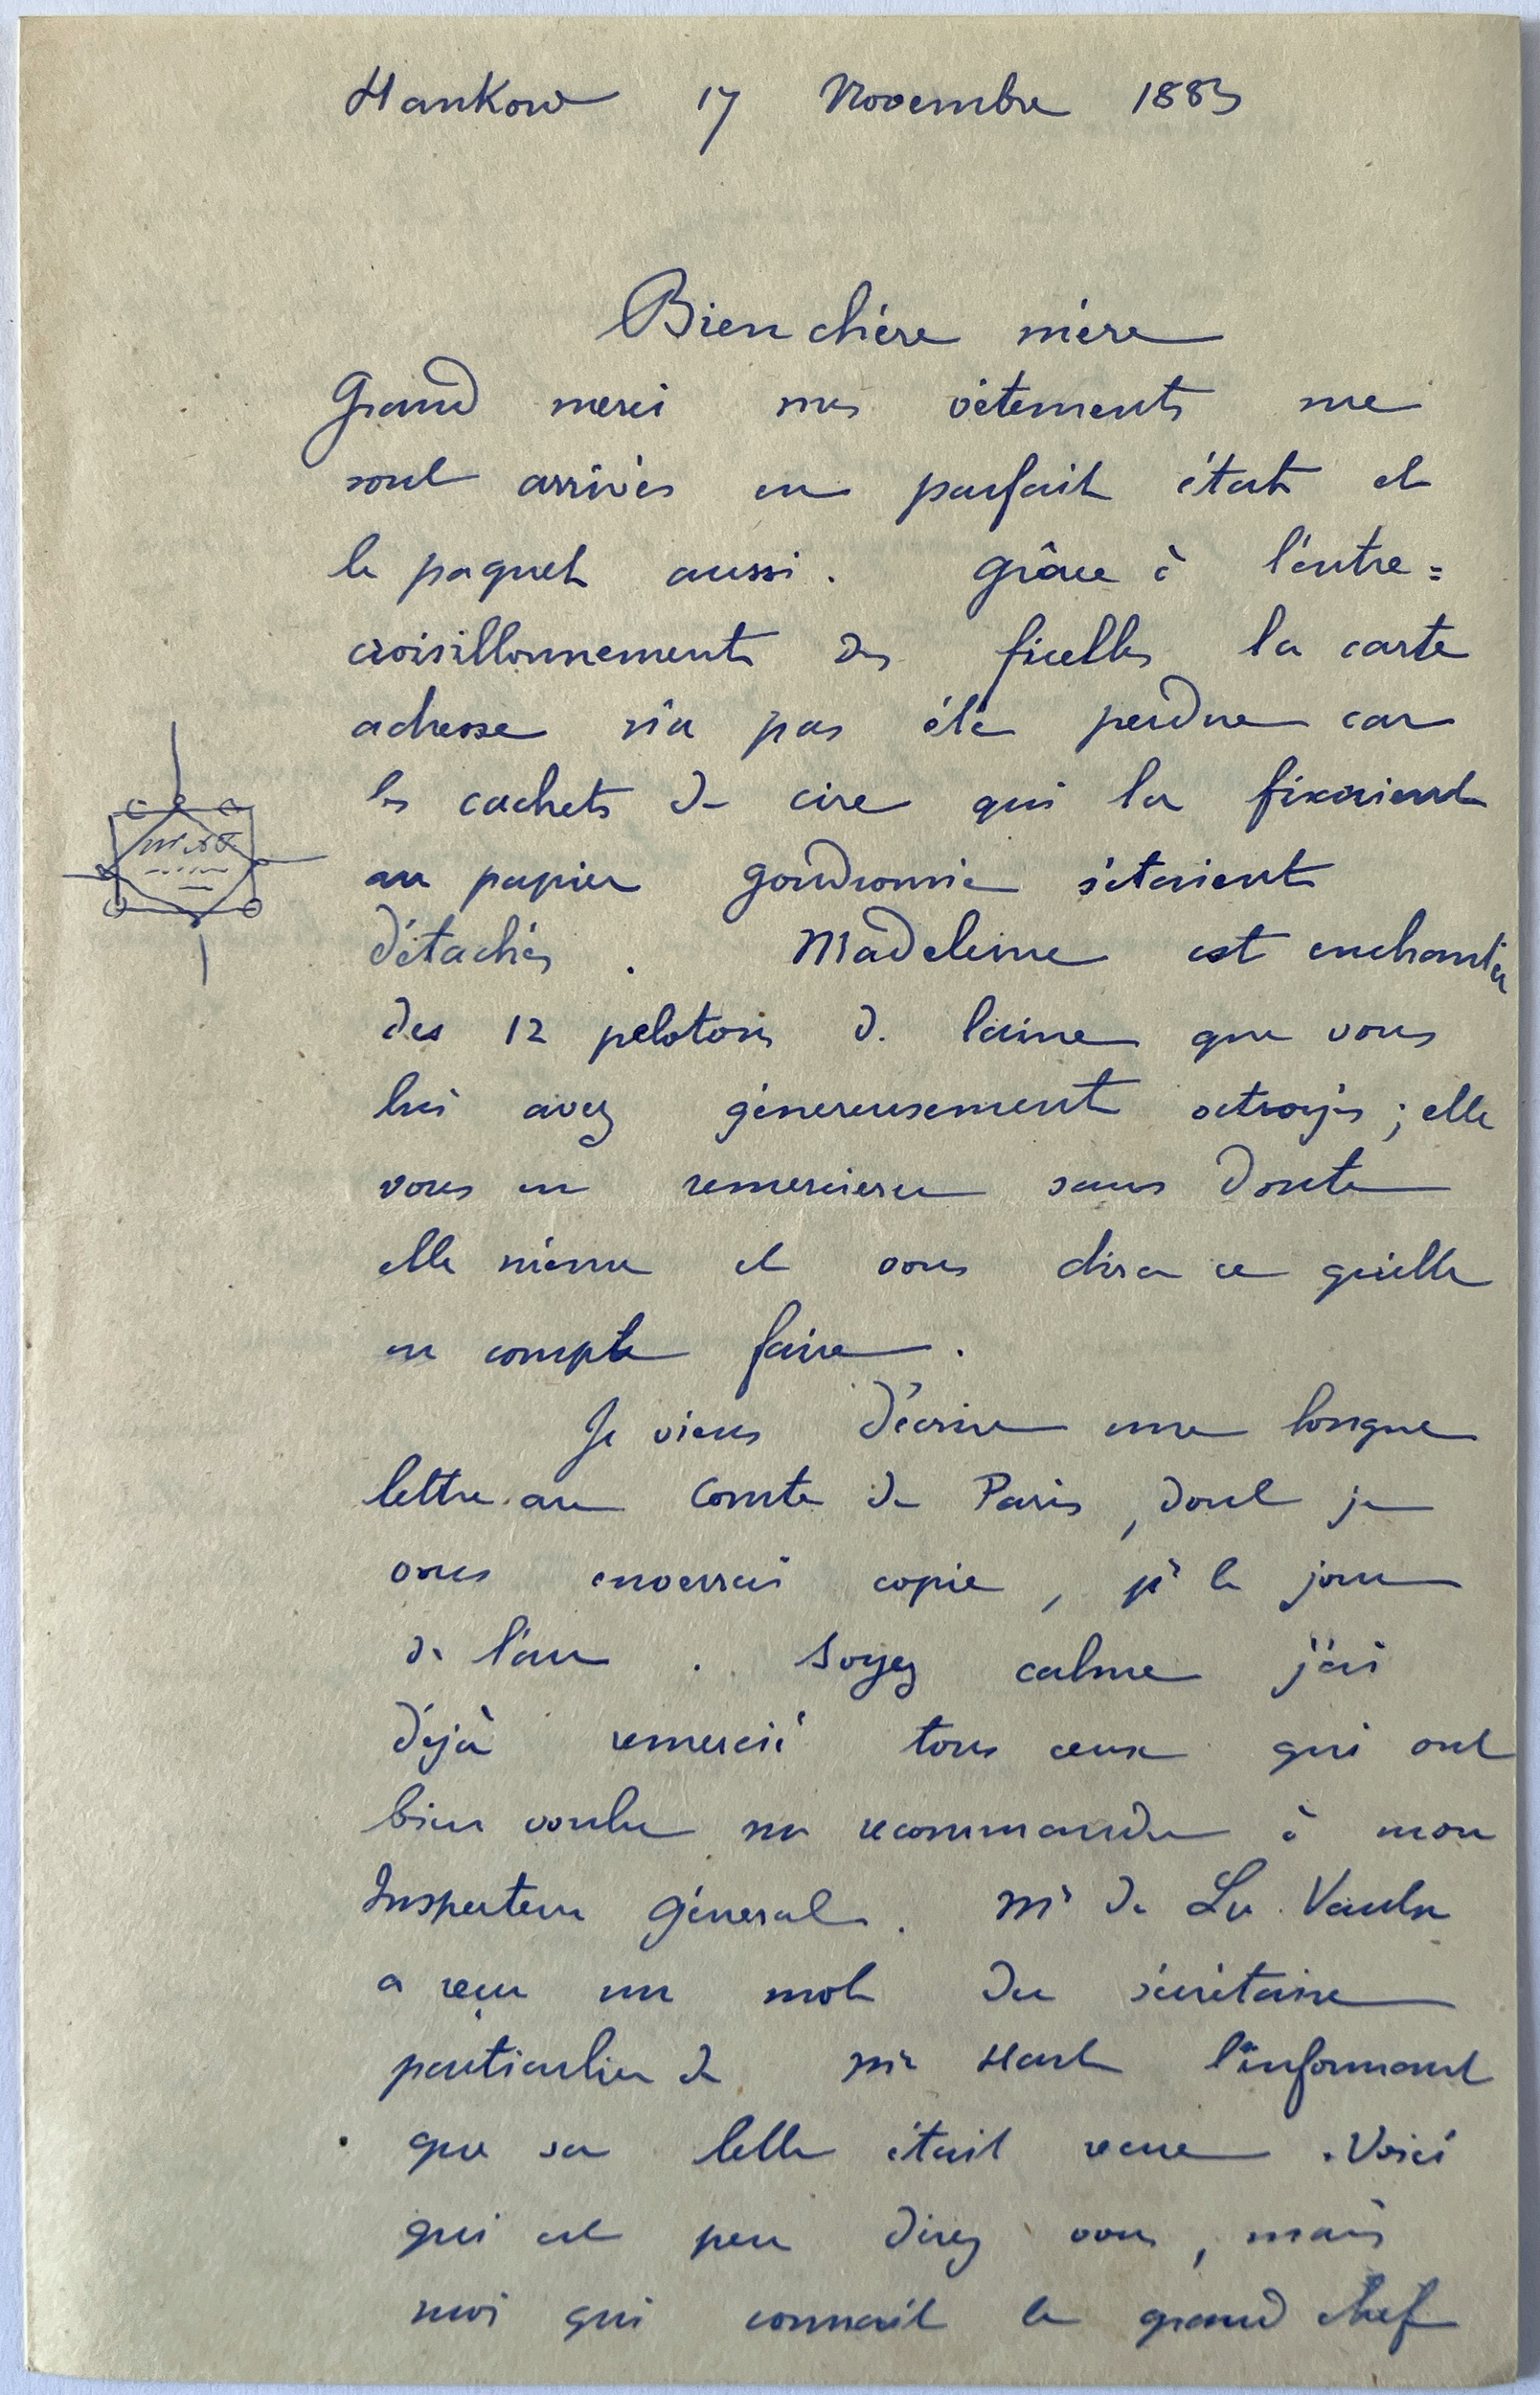 Hankow 17 Novembre 1883
Bien chère mère
Grand merci mes vêtements me
sont arrivés en parfait état et
le paquet aussi. Grâce à l'entre=
croisillonnement des ficelles la carte
adresse n'a pas été perdue car
les cachets de cire qui la fixaient
au papier goudronné s'étaient
détachés. Madeleine est enchantée
des 12 pelotons de laine que vous
lui avez génereusement octroyés ; elle
vous en remerciera sans doute
elle même et vous dira ce qu'elle
en compte faire.
Je viens d'écrire une longue
lettre au Comte de Paris, dont je
vous enverrai copie, pr le jour
de l'an. Soyez calme j'ai
déjà remercié tous ceux qui ont
bien voulu me recommander à mon
Inspecteur Général. Mr de La Vaulx
a reçu un mot du secrétaire
particulier de Mr Hart l'informant
que sa lettre était reçue. Voici
qui est peu direz vous, mais
moi qui connait le grand chef